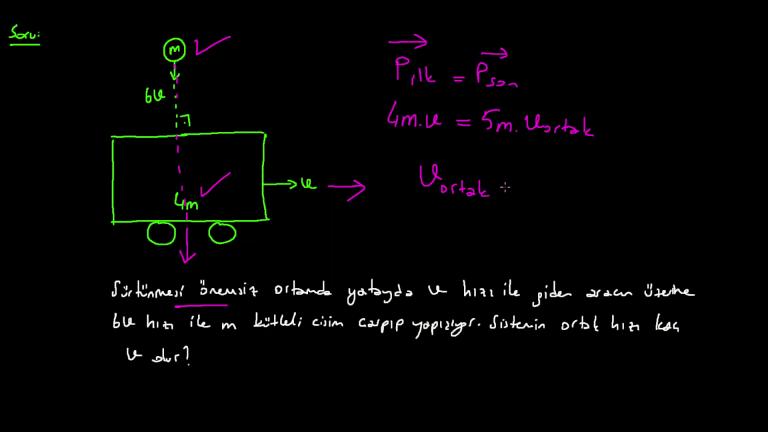 Soru:
m
6v
4m
v
P ilk = P son
4m.v = 5m.vortak
vortak =
Sürtünmesi önemsiz ortamda yatayda v hızı ile giden aracın üzerine
6v hızı ile m kütleli cisim çarpıp yapışıyor. Sistemin ortak hızı kaç
v dur?